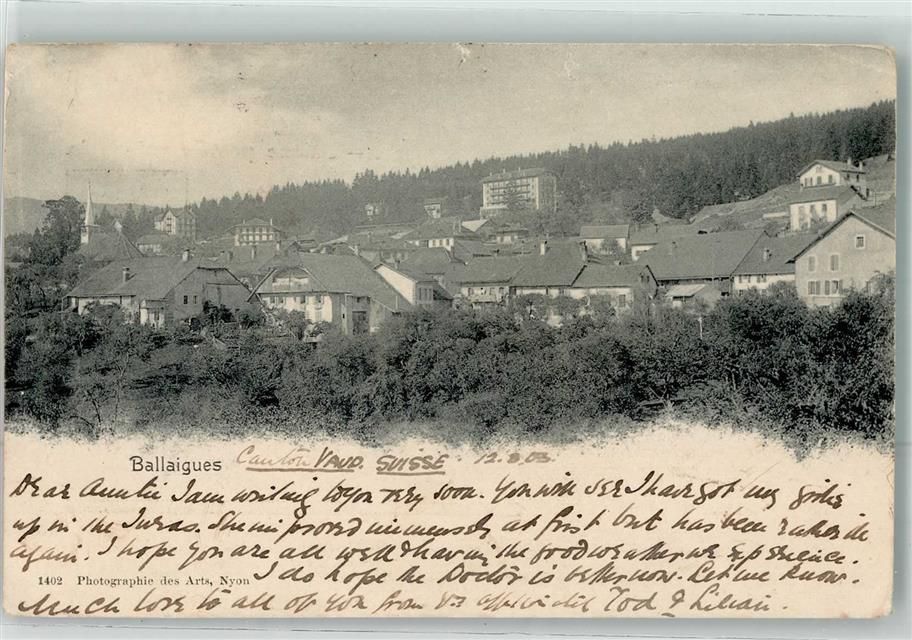 Ballaigues Canton VAUD. SUISSE. 12.8.03
Dear Auntie I am writing to you very soon. You will see I have got my girlie
up in the Juras. She improved immensely at first but has been rather
again. I hope you are all well & having the good weather we experience.
1402 Photographie des Arts, Nyon I do hope the Doctor is better now. Let me know.
Much love to all of you from Tod & Lilian.